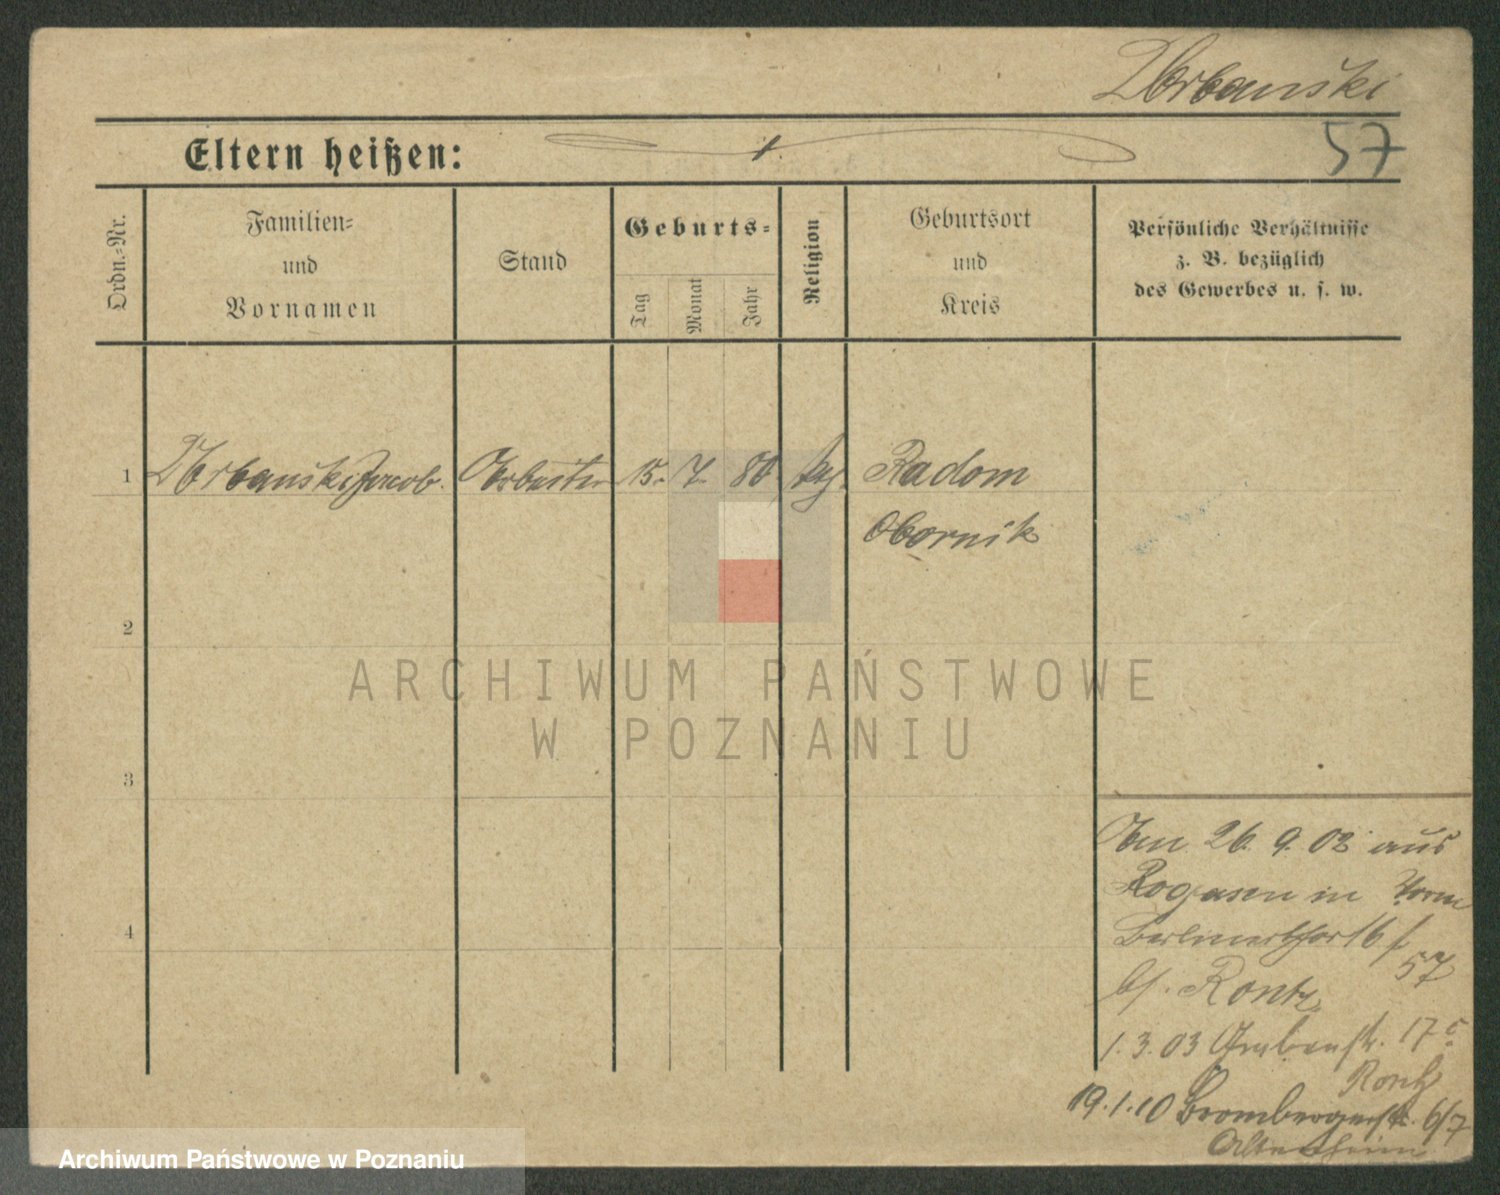 Urbański
57
Eltern heißen:
Ordn.-Nr.
Familien-
und
Vornamen
Stand
Geburts-
Tag
Monat
Jahr
Religion
Geburtsort
und
Kreis
Persönliche Verhältnisse
z. B. bezüglich
des Gewerbes u. s. w.
1 Urbański Jacob. Arbeiter 15. 7. Radom
Obornik
2
3
4
ARCHIWUM PAŃSTWOWE
W POZNANIU
Am 26. 9. 02 aus
Rogasen in
57
b/. Rontz
1.3.03 Grabenstr. 17
Rontz
19.1.10 Brombergerstr. 6/7
Altersheim
Archiwum Państwowe w Poznaniu